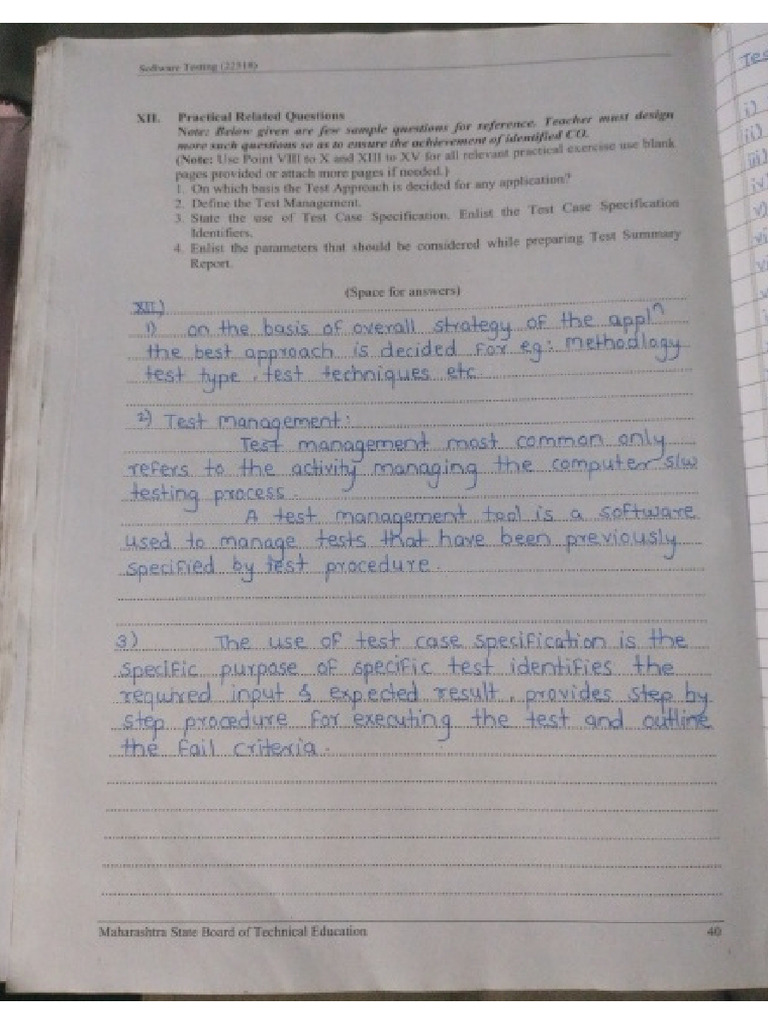 Software Testing (22518)
XII. Practical Related Questions
Note: Below given are few sample questions for reference. Teacher must design
more such questions so as to ensure the achievement of identified CO.
(Note: Use Point VIII to X and XIII to XV for all relevant practical exercise use blank
pages provided or attach more pages if needed.)
1. On which basis the Test Approach is decided for any application?
2. Define the Test Management.
3. State the use of Test Case Specification. Enlist the Test Case Specification
Identifiers.
4. Enlist the parameters that should be considered while preparing Test Summary
Report.
(Space for answers)
XII)
1) on the basis of overall strategy of the appln
the best approach is decided for eg: methodlogy
test type, test techniques etc.
2) Test management:
Test management most common only
refers to the activity managing the computer s/w
testing process.
A test management tool is a software
used to manage tests that have been previously
specified by test procedure.
3) The use of test case specification is the
specific purpose of specific test identifies the
required input & expected result, provides step by
step procedure for executing the test and outline
the fail criteria.
Maharashtra State Board of Technical Education 40
i)
ii)
iii)
iv)
v)